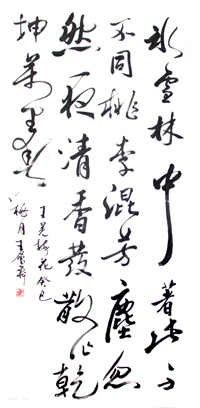 冰雪林中著此身
不同桃李混芳塵忽
然一夜清香發散作乾
坤萬里春
王冕梅花癸巳
梅月